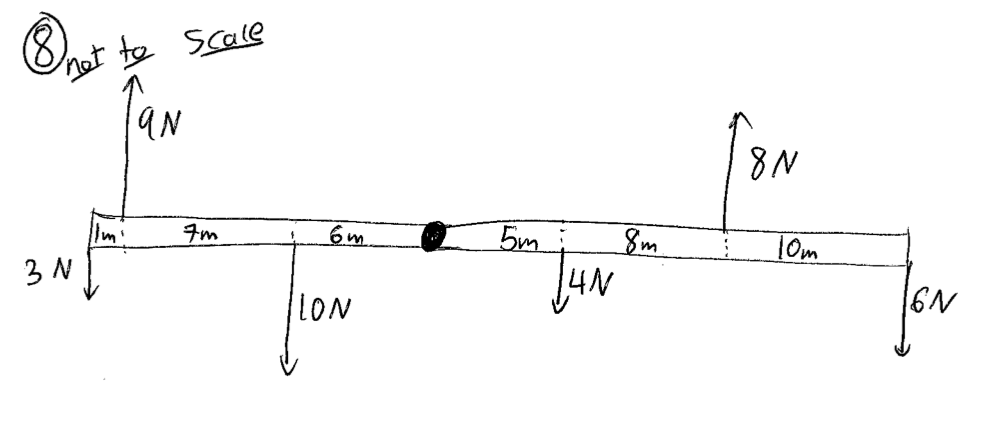 8 not to scale
9N
8N
1m 7m 6m 5m 8m 10m
3N
10N
4N
6N